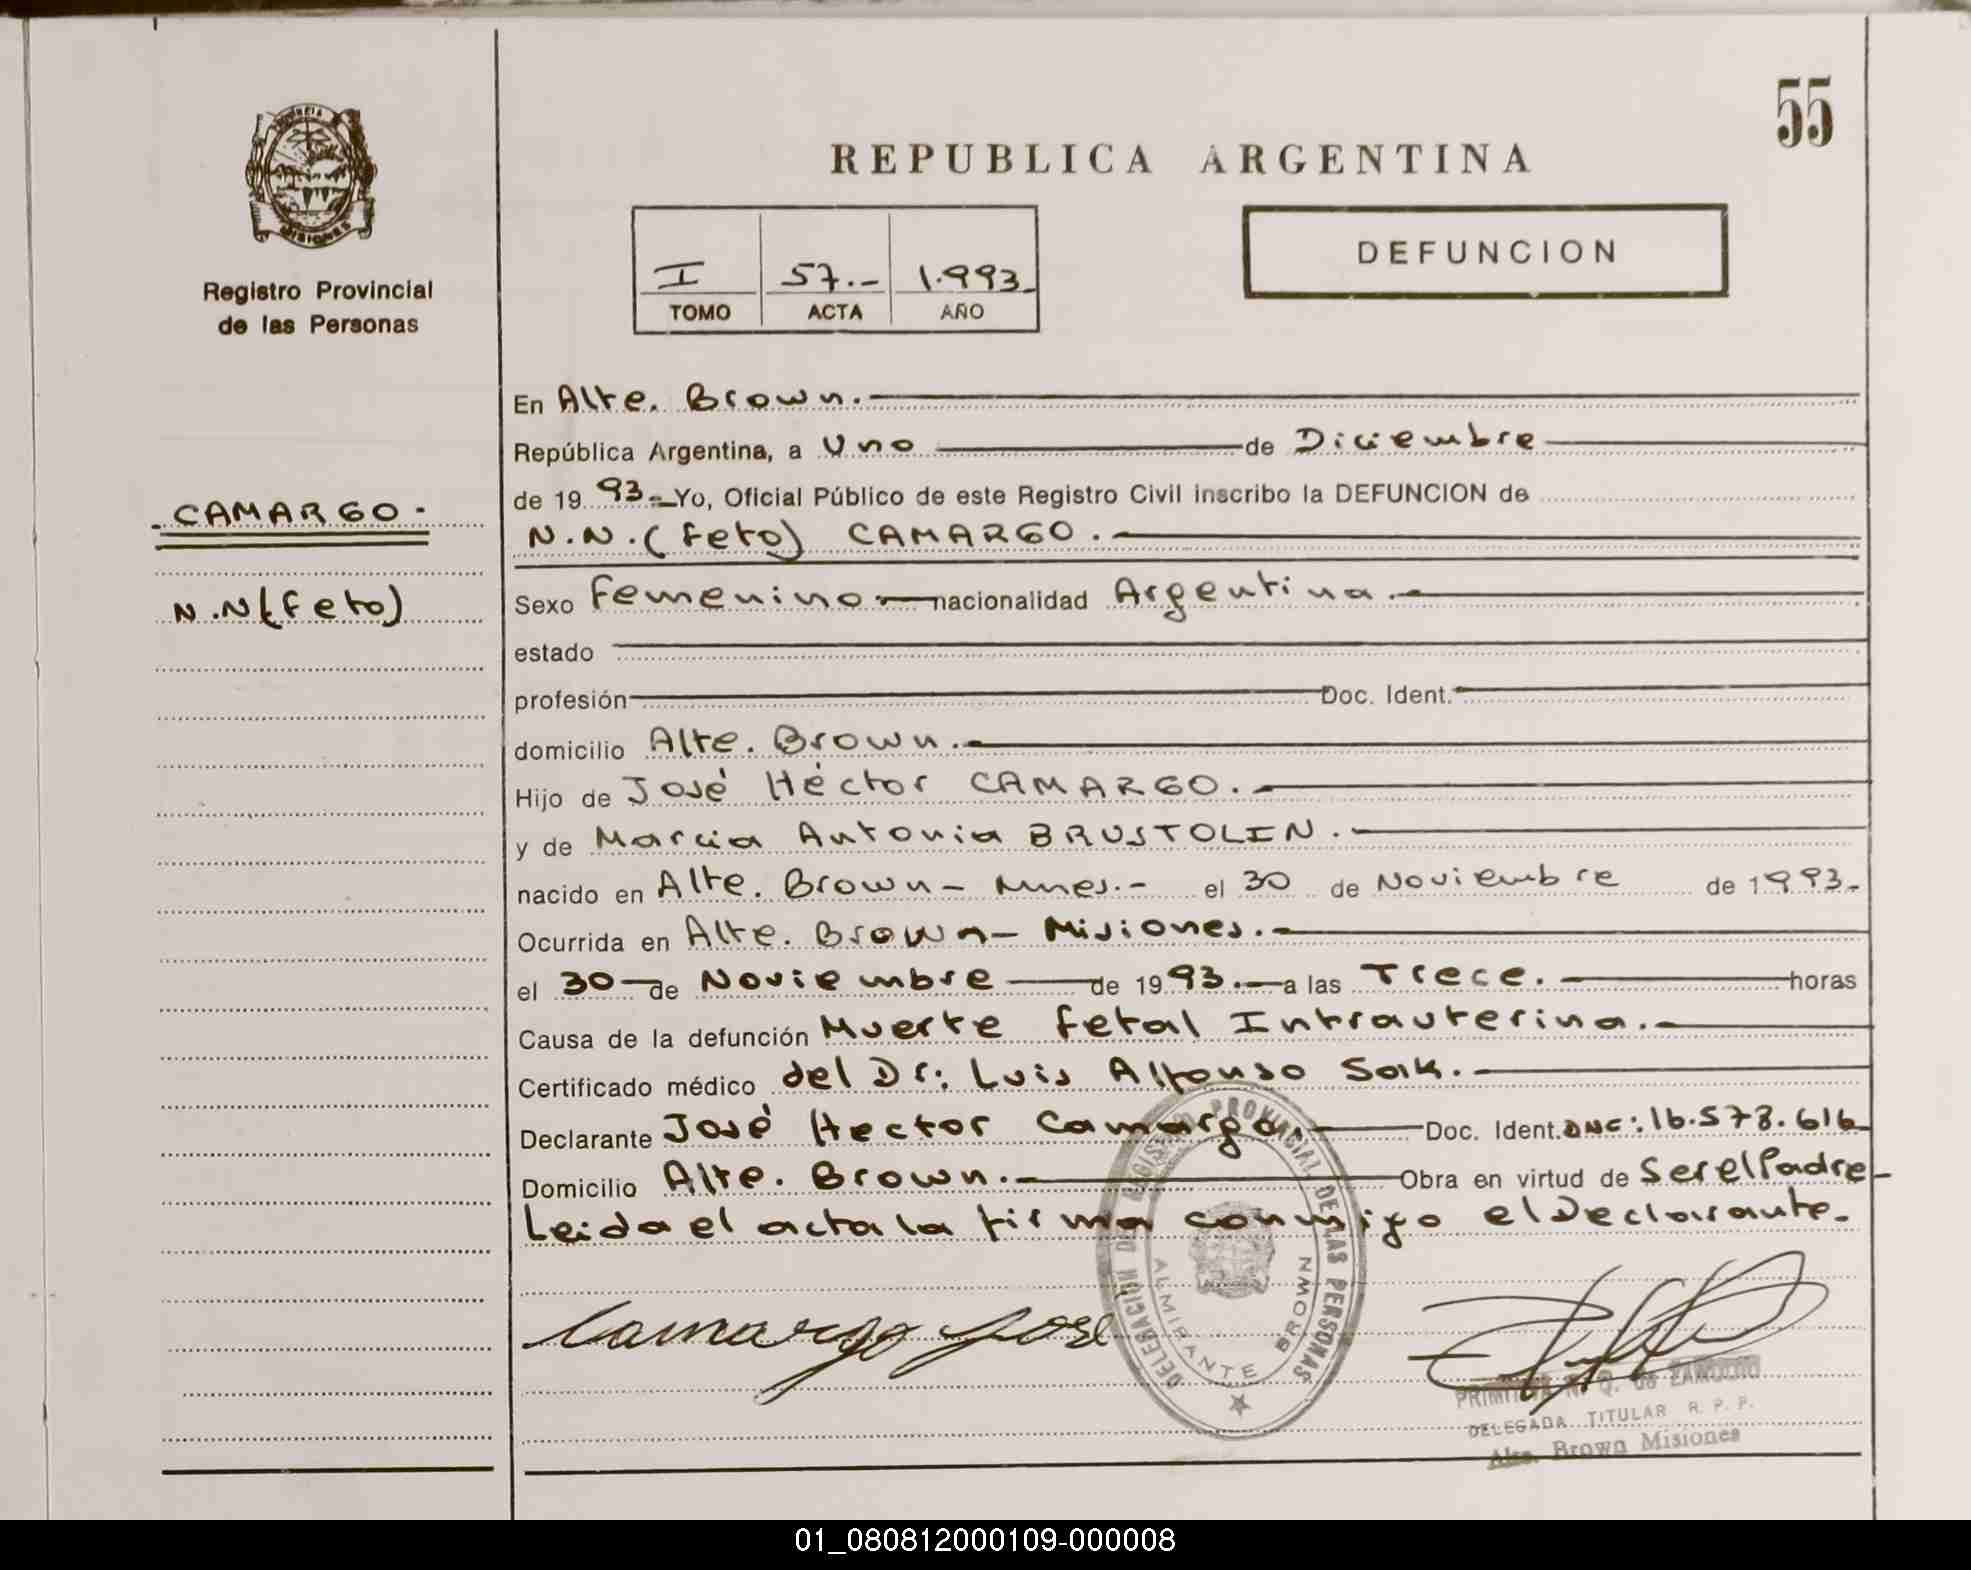 55
REPUBLICA ARGENTINA
MISIONES
Registro Provincial
de las Personas
I 57.- 1.993-
TOMO ACTA AÑO
DEFUNCION
CAMARGO-
N.N(feto)
En Alte. Brown.
República Argentina, a Uno de Diciembre
de 19 93- Yo, Oficial Público de este Registro Civil inscribo la DEFUNCION de
N.N.(feto) CAMARGO.
Sexo femenino nacionalidad Argentina.
estado
profesión Doc. Ident.
domicilio Alte. Brown.
Hijo de José Héctor CAMARGO.
y de Marcia Antonia BRUSTOLIN.
nacido en Alte. Brown- Mnes.- el 30 de Noviembre de 1993-
Ocurrida en Alte. Brown- Misiones.
el 30 de Noviembre de 19 93. a las Trece. horas
Causa de la defunción Muerte fetal Intrauterina.
Certificado médico del Dr: Luis Alfonso Sak.
Declarante José Hector Camargo. Doc. Ident. DNI: 16.573.616
Domicilio Alte. Brown. Obra en virtud de Ser el Padre-
Leida el acta la firma conmigo el Declarante-
Camargo Jose
DELEGACION REGISTRO PROVINCIAL DE LAS PERSONAS
ALMIRANTE BROWN
Q. de
DELEGADA TITULAR R. P. P.
Alte. Brown Misiones
01_080812000109-000008